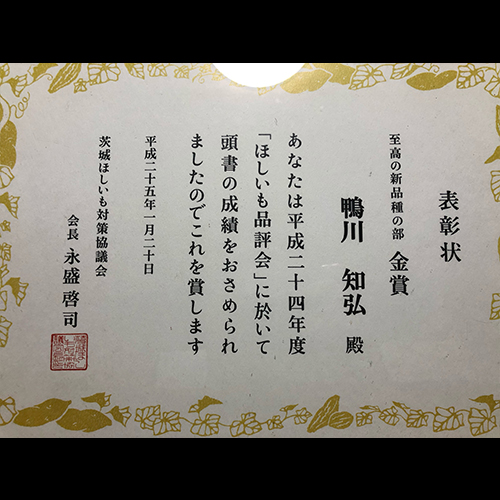 表彰状
至高の新品種の部 金賞
鴨川 知弘 殿
あなたは平成二十四年度
「ほしいも品評会」に於いて
頭書の成績をおさめられ
ましたのでこれを賞します
平成二十五年一月二十日
茨城ほしいも対策協議会
会長 永盛啓司